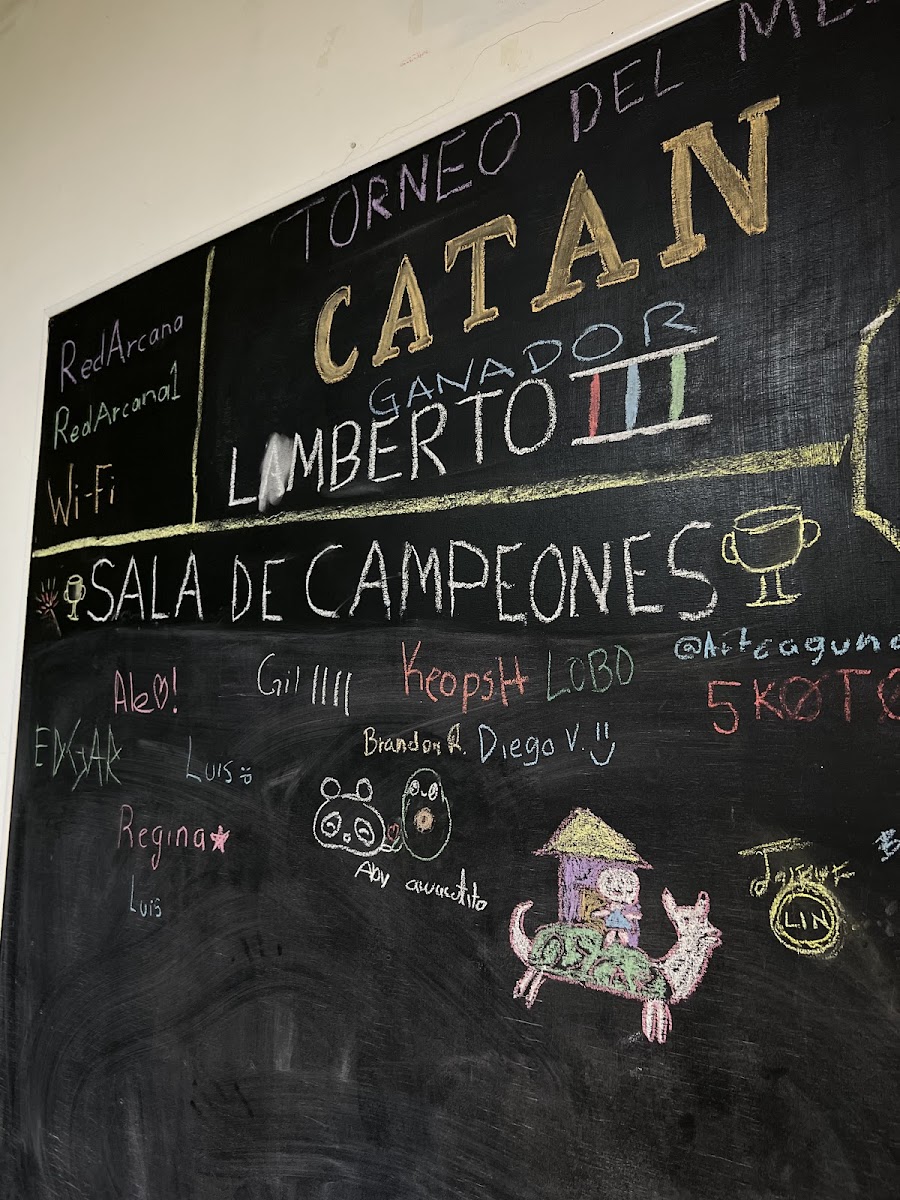 TORNEO DEL
CATAN
GANADOR
LAMBERTO III
RedArcana
RedArcana1
Wi-Fi
SALA DE CAMPEONES
Ale!
Gil IIIII
KeopsH
LOBO
5KØTO
EDGAR
Luis
Brandon R.
Diego V.
Regina
Luis
LIN